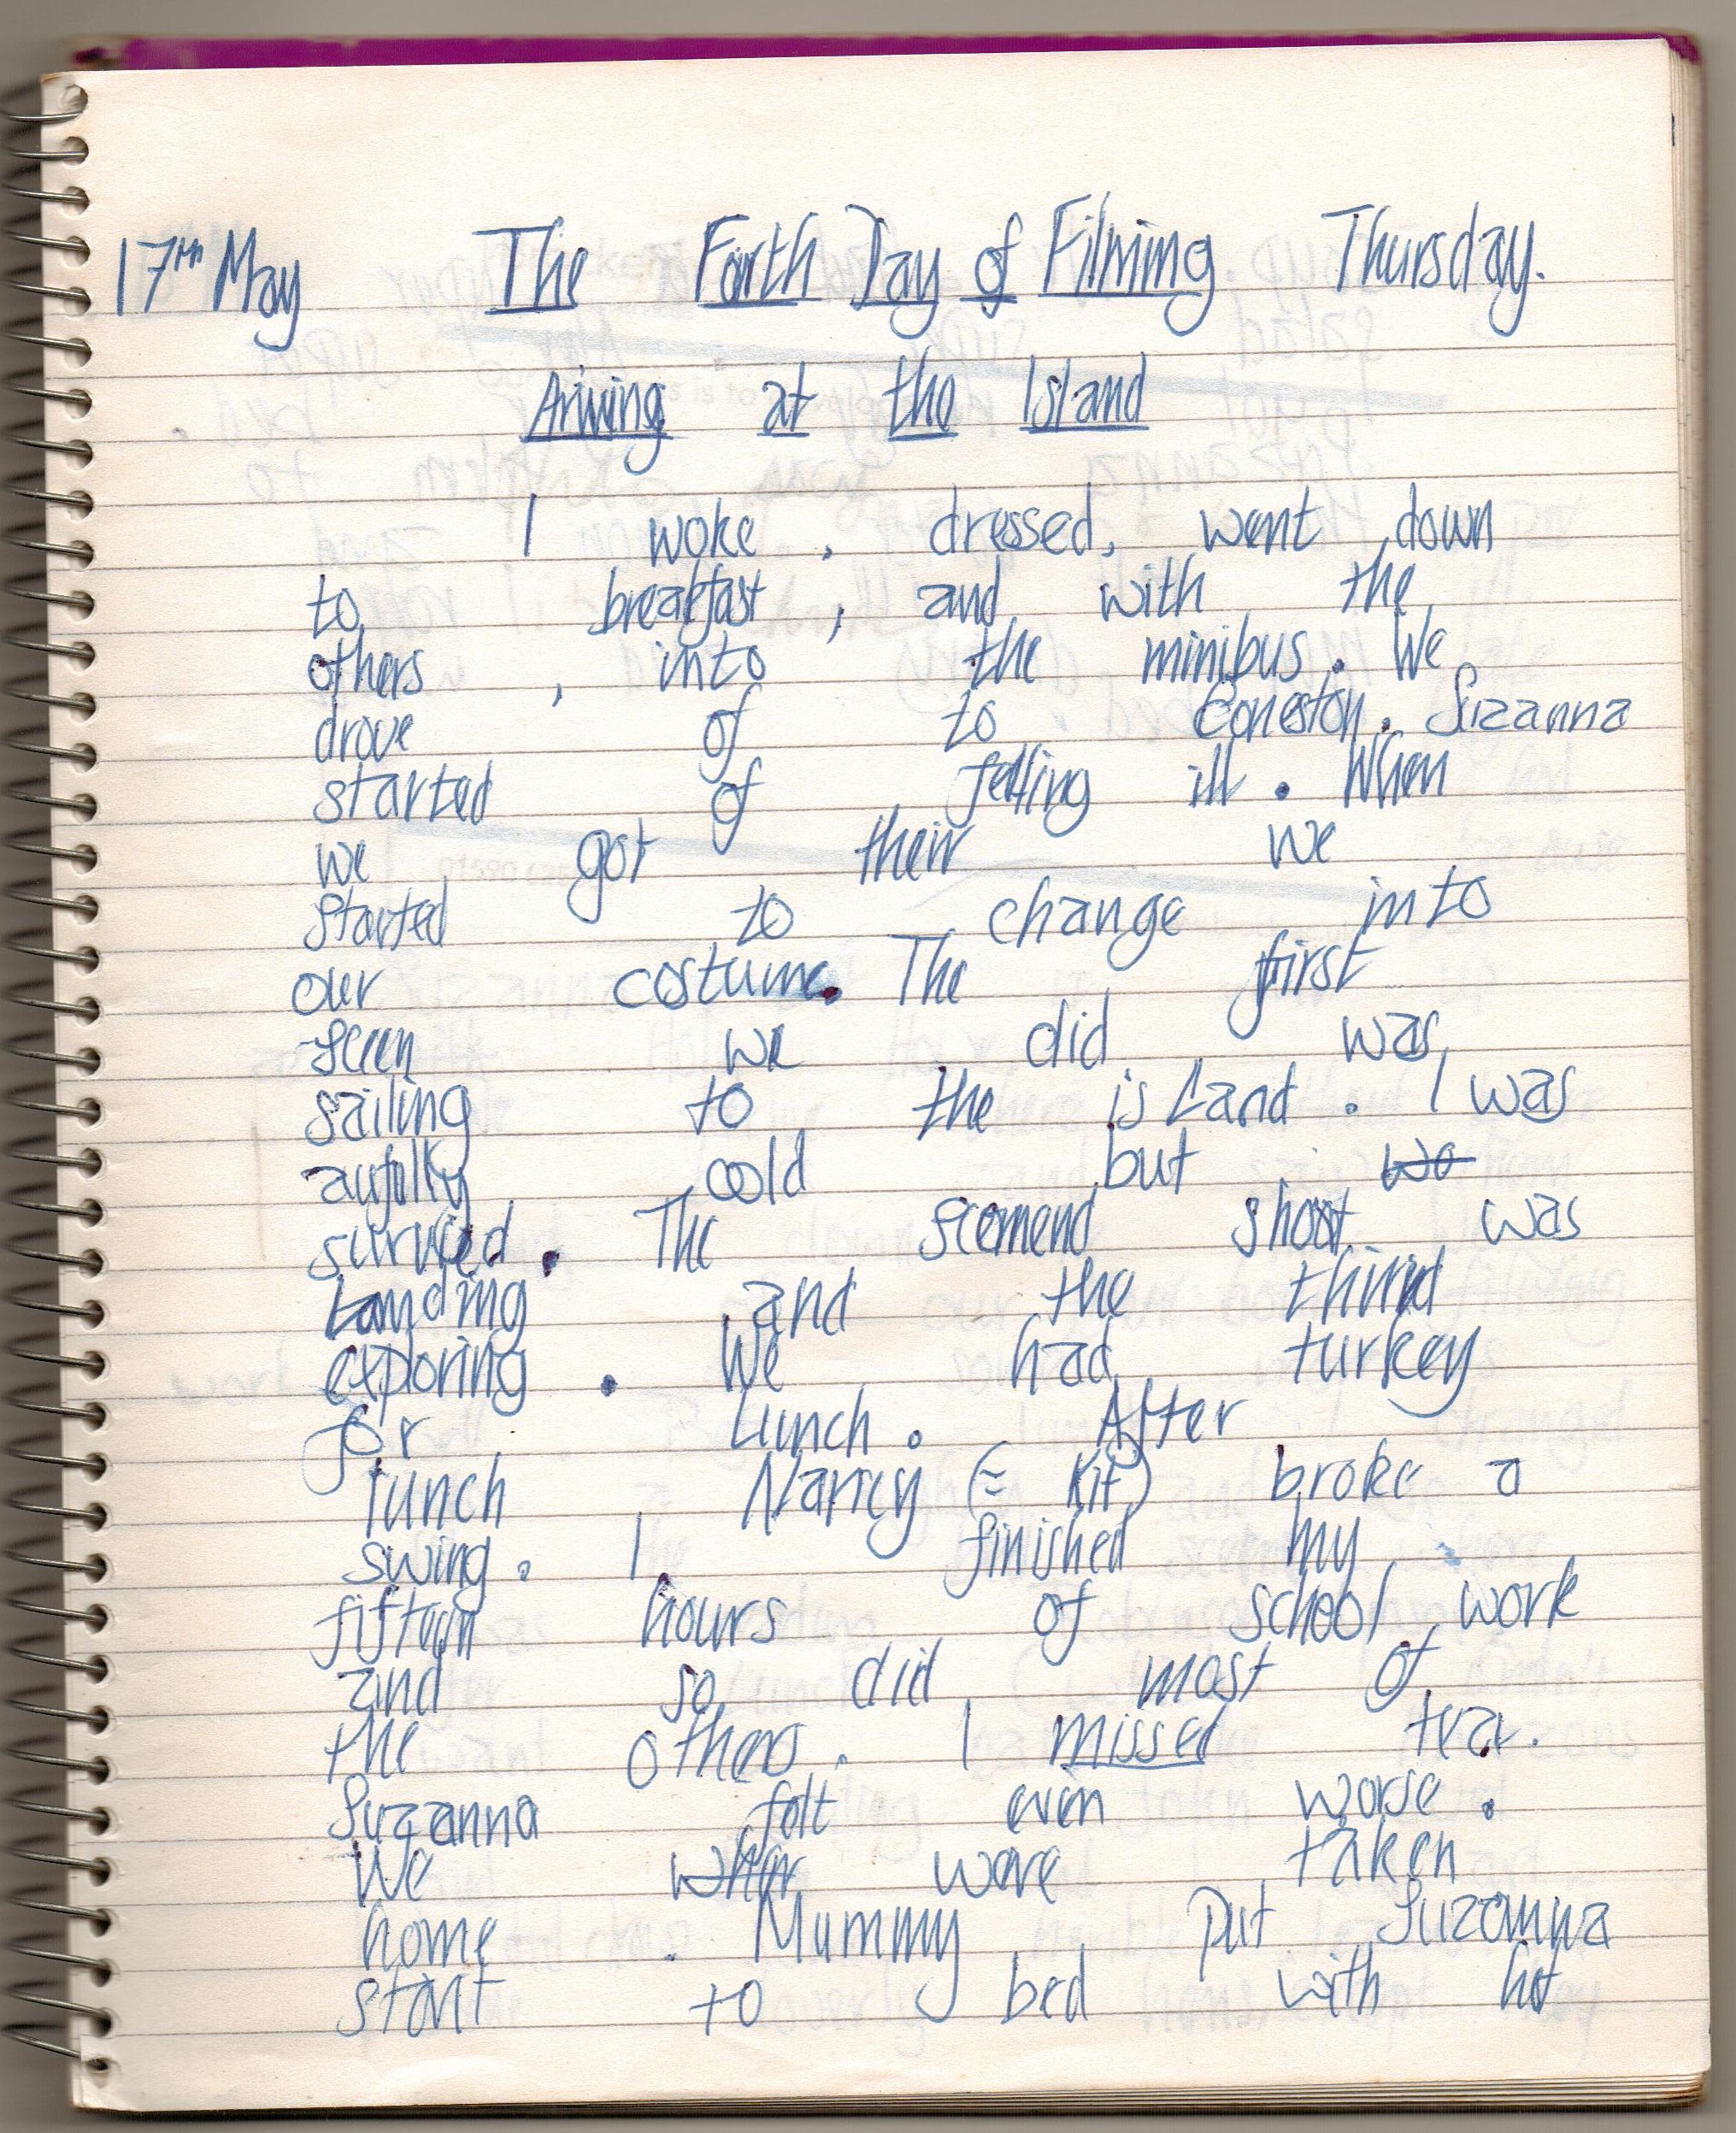 17th May The Forth Day of Filming. Thursday.
Ariving at the Island
I woke, dressed, went down
to breakfast, and with the
others, into the minibus. We
drove of to Coneston. Suzanna
started of felling ill. When
we got their we
started to change into
our costume. The first
sceen we did was,
sailing to the island. I was
aufully cold but wo
survied. The scomend shoot was
Landing and the third
exploring. We had turkey
for Lunch. After
lunch Nancy (= Kit) broke a
swing. I finished my
fifteen hours of school work
and so did most of
the others. I missed tea.
Suzanna felt even worse.
We wher were taken
home. Mummy put Suzanna
start to bed with hot